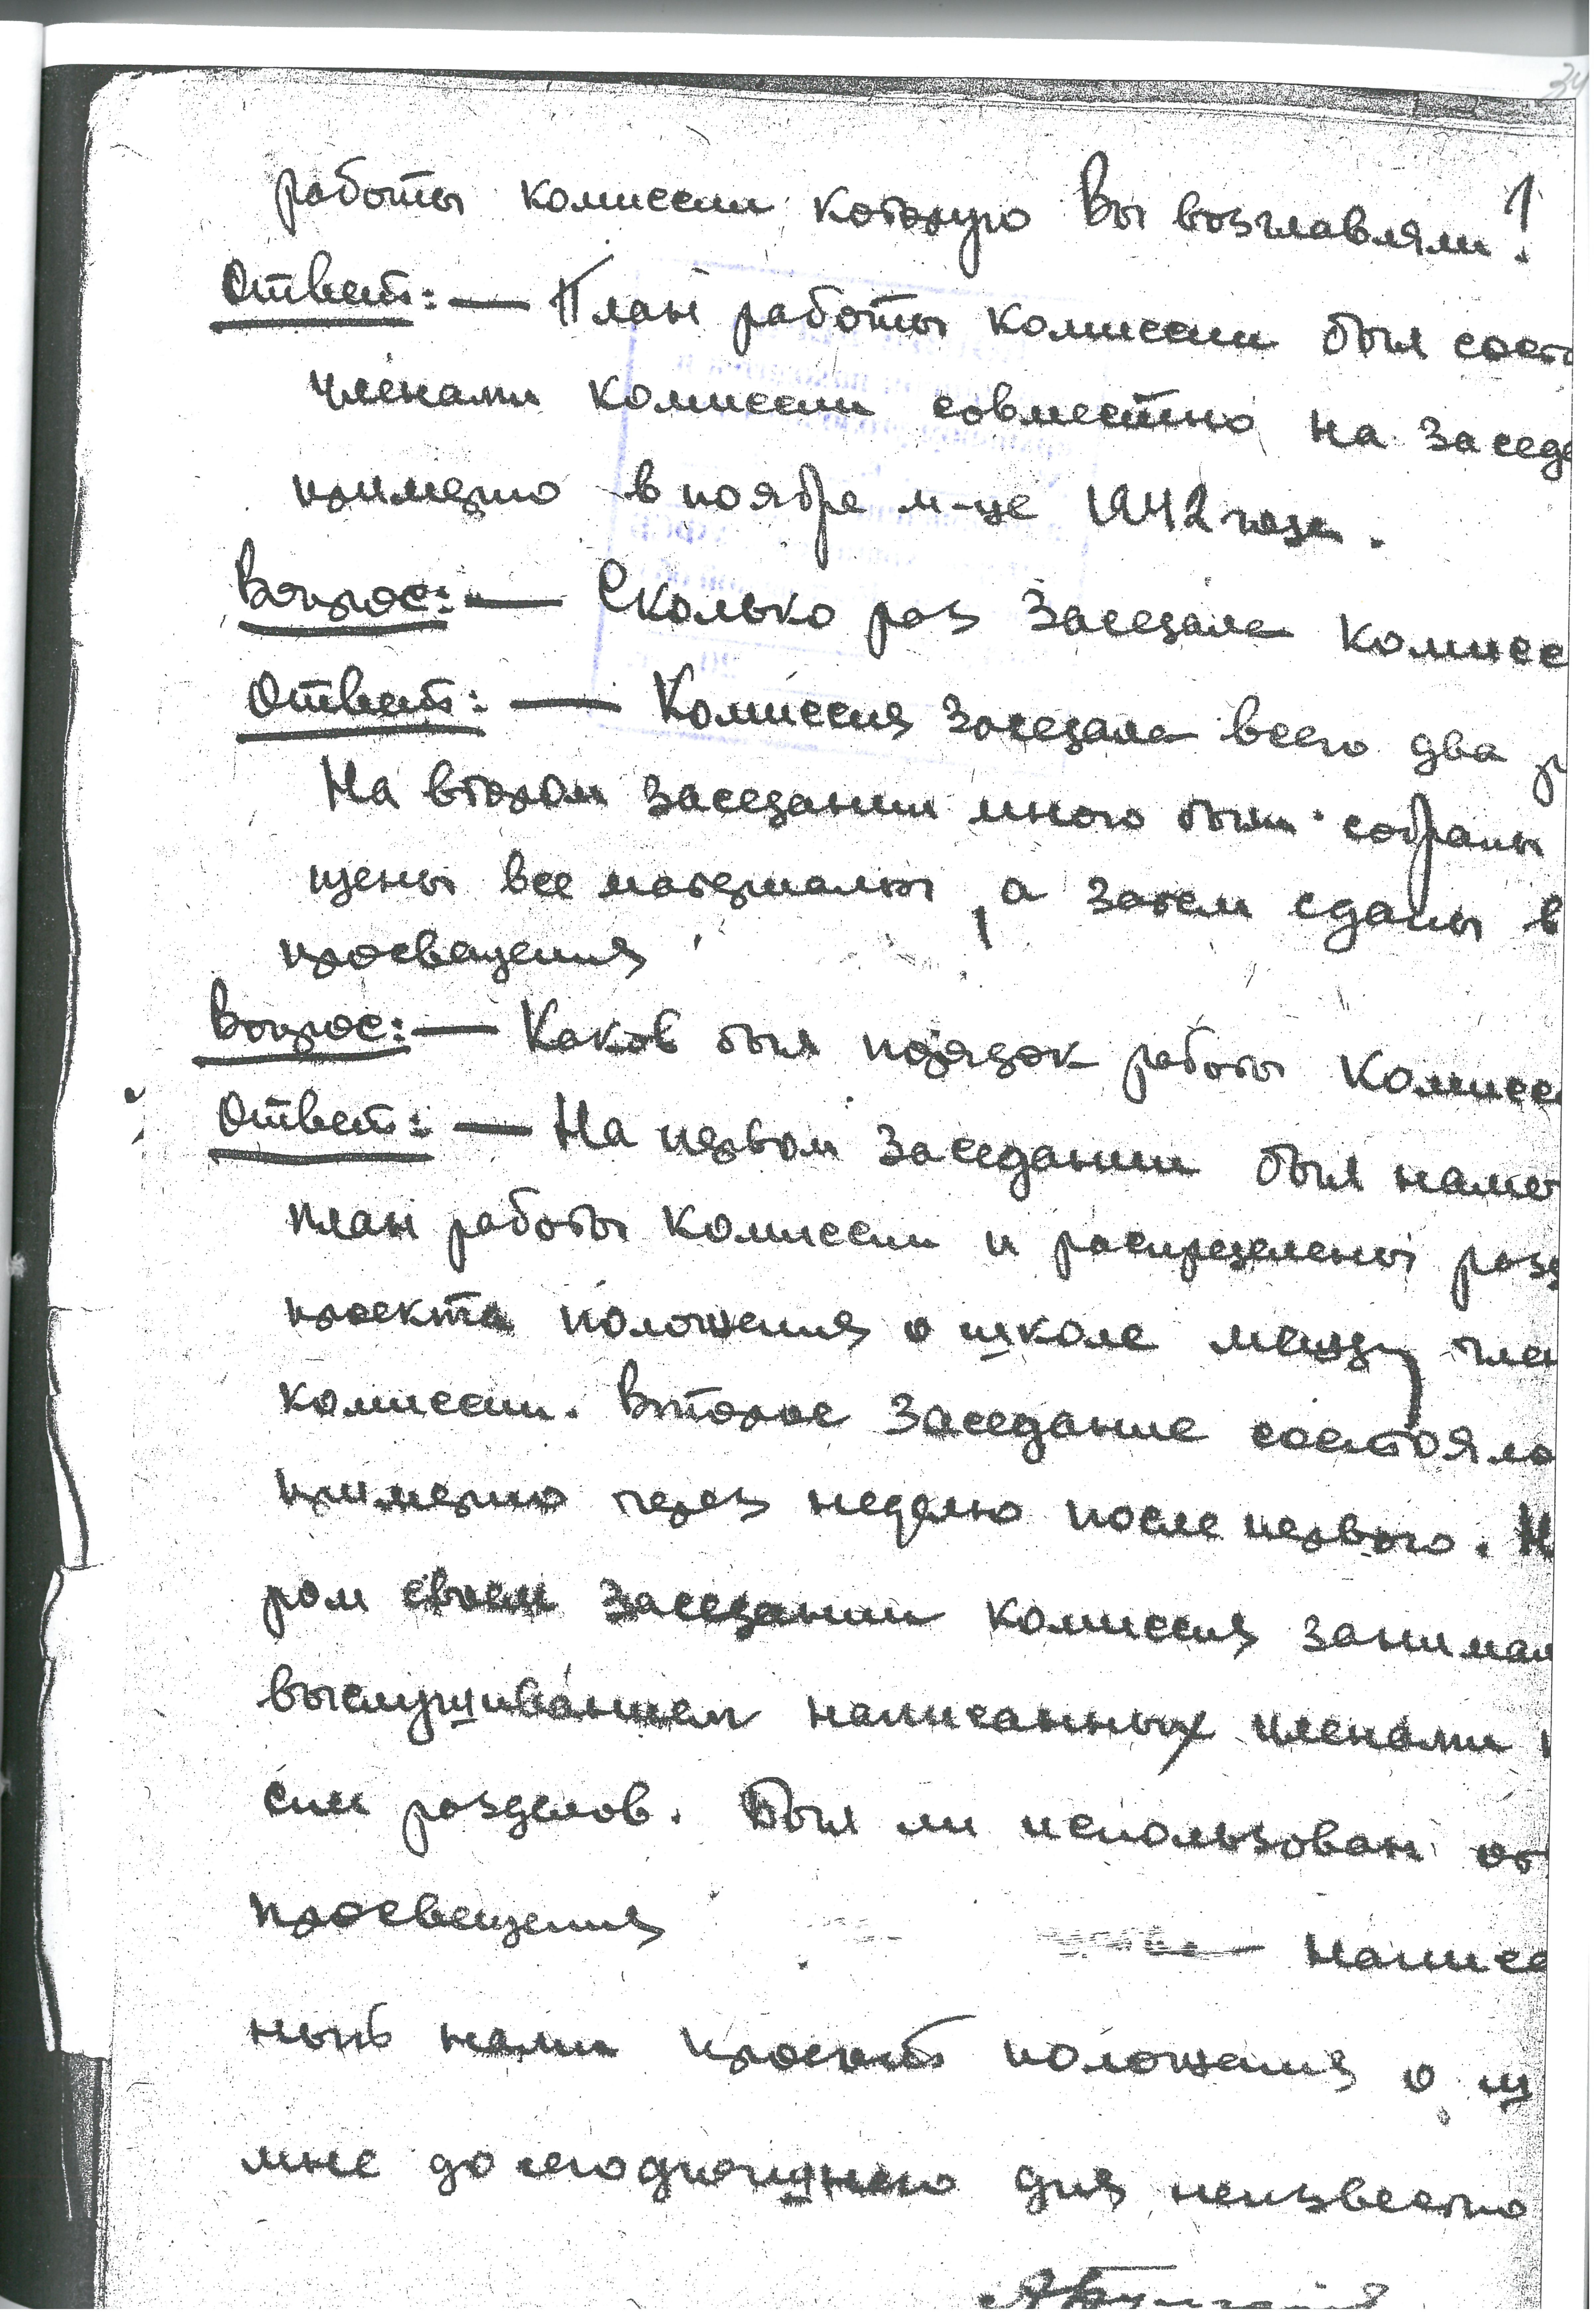 34
работы комиссии которую Вы возглавляли?
Ответ: — План работы комиссии был соста
членами комиссии совместно на заседа
примерно в ноябре м-це 1942 года.
Вопрос: — Сколько раз заседала комисс
Ответ: — Комиссия заседала всего два р
На втором заседании мною были собраны
щены все материалы, а затем сданы в
просвещения
Вопрос: — Каков был порядок работы комисс
Ответ: — На первом заседании был наме
план работы комиссии и распределены разд
проекта положения о школе между чле
комиссии. Второе заседание состояло
примерно через неделю после первого. Н
ром своем заседании комиссия занимал
выслушиванием написанных членами к
сии разделов. Был ли использован от
просвещения — написа
ный нами проект положения о ш
мне до сегодняшнего дня неизвестно